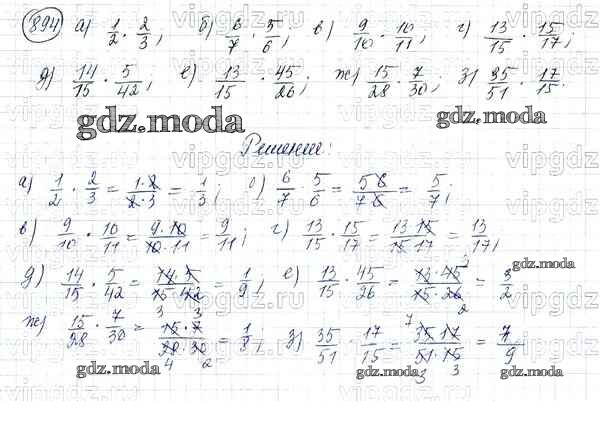 894 а) 1/2 · 2/3, б) 6/7 · 5/6; в) 9/10 · 10/11; г) 13/15 · 15/17;
д) 14/15 · 5/42, е) 13/15 · 45/26; ж) 15/28 · 7/30; з) 35/51 · 17/15.
gdz.moda gdz.moda
Решение:
а) 1/2 · 2/3 = 1·2/2·3 = 1/3; б) 6/7 · 5/6 = 5 6/7 6 = 5/7;
в) 9/10 · 10/11 = 9·10/10·11 = 9/11; г) 13/15 · 15/17 = 13 15/15 17 = 13/17;
gdz.moda
д) 14/15 · 5/42 = 14·5/15·42 = 1/9; е) 13/15 · 45/26 = 13·45/15·26 = 3/2
ж) 15/28 · 7/30 = 15·7/28·30 = 1/8; з) 35/51 · 17/15 = 35 17/51·15 = 7/9
gdz.moda gdz.moda
vipgdz.ru